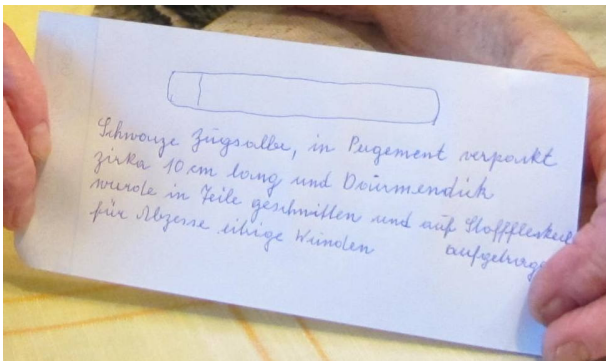 Schwarze Zugsalbe, in Pergament verpackt
zirka 10 cm lang und Daumendick
wurde in Teile geschnitten und auf Stoffflecken
für Abzesse eitrige Wunden